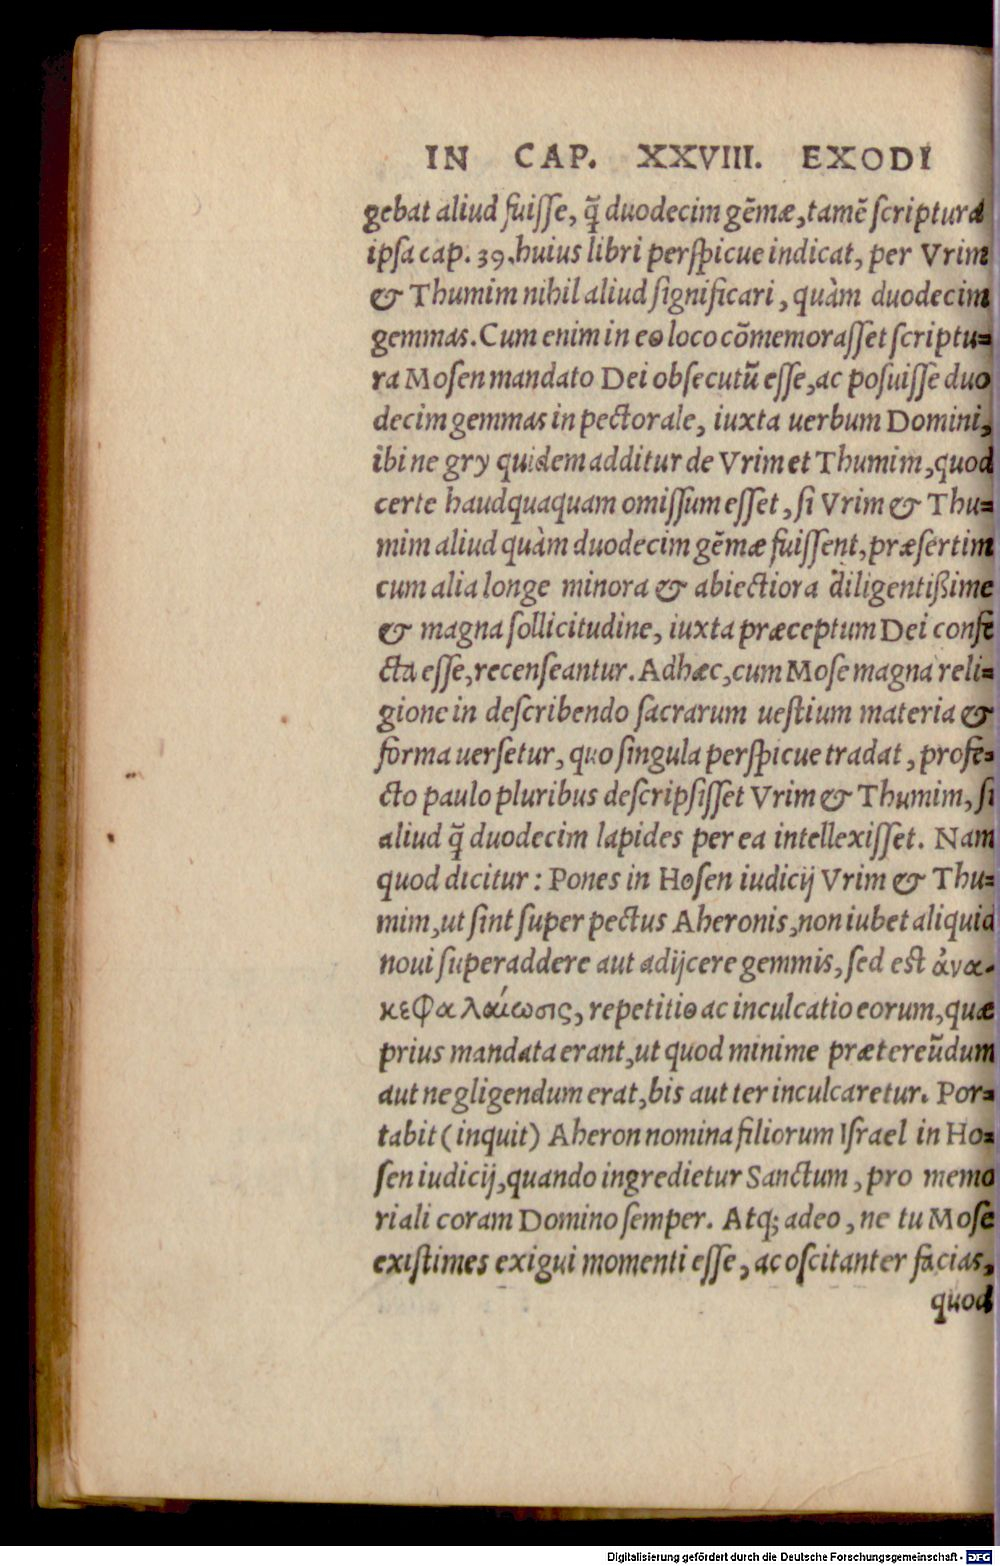 IN CAP. XXVIII. EXODI
gebat aliud fuiſſe, q̃ duodecim gẽmæ, tamẽ ſcriptura
ipſa cap. 39. huius libri perſpicue indicat, per Vrim
& Thumim nihil aliud ſignificari, quàm duodecim
gemmas. Cum enim in eo loco cõmemoraſſet ſcriptu=
ra Moſen mandato Dei obſecutũ eſſe, ac poſuiſſe duo
decim gemmas in pectorale, iuxta uerbum Domini,
ibi ne gry quidem additur de Vrim et Thumim, quod
certe haudquaquam omiſſum eſſet, ſi Vrim & Thu=
mim aliud quàm duodecim gẽmæ fuiſſent, præſertim
cum alia longe minora & abiectiora diligentißime
& magna ſollicitudine, iuxta præceptum Dei confe
cta eſſe, recenſeantur. Adhæc, cum Moſe magna reli=
gione in deſcribendo ſacrarum ueſtium materia &
forma uerſetur, quo ſingula perſpicue tradat, profe=
cto paulo pluribus deſcripſiſſet Vrim & Thumim, ſi
aliud q̃ duodecim lapides per ea intellexiſſet. Nam
quod dicitur: Pones in Hoſen iudicij Vrim & Thu=
mim, ut ſint ſuper pectus Aheronis, non iubet aliquid
noui ſuperaddere aut adijcere gemmis, ſed eſt ἀνα-
κεφαλαίωσις, repetitio ac inculcatio eorum, quæ
prius mandata erant, ut quod minime prætereũdum
aut negligendum erat, bis aut ter inculcaretur. Por=
tabit (inquit) Aheron nomina filiorum Iſrael in Ho=
ſen iudicij, quando ingredietur Sanctum, pro memo
riali coram Domino ſemper. Atq; adeo, ne tu Moſe
exiſtimes exigui momenti eſſe, ac oſcitanter facias,
quod
Digitalisierung gefördert durch die Deutsche Forschungsgemeinschaft - DFG